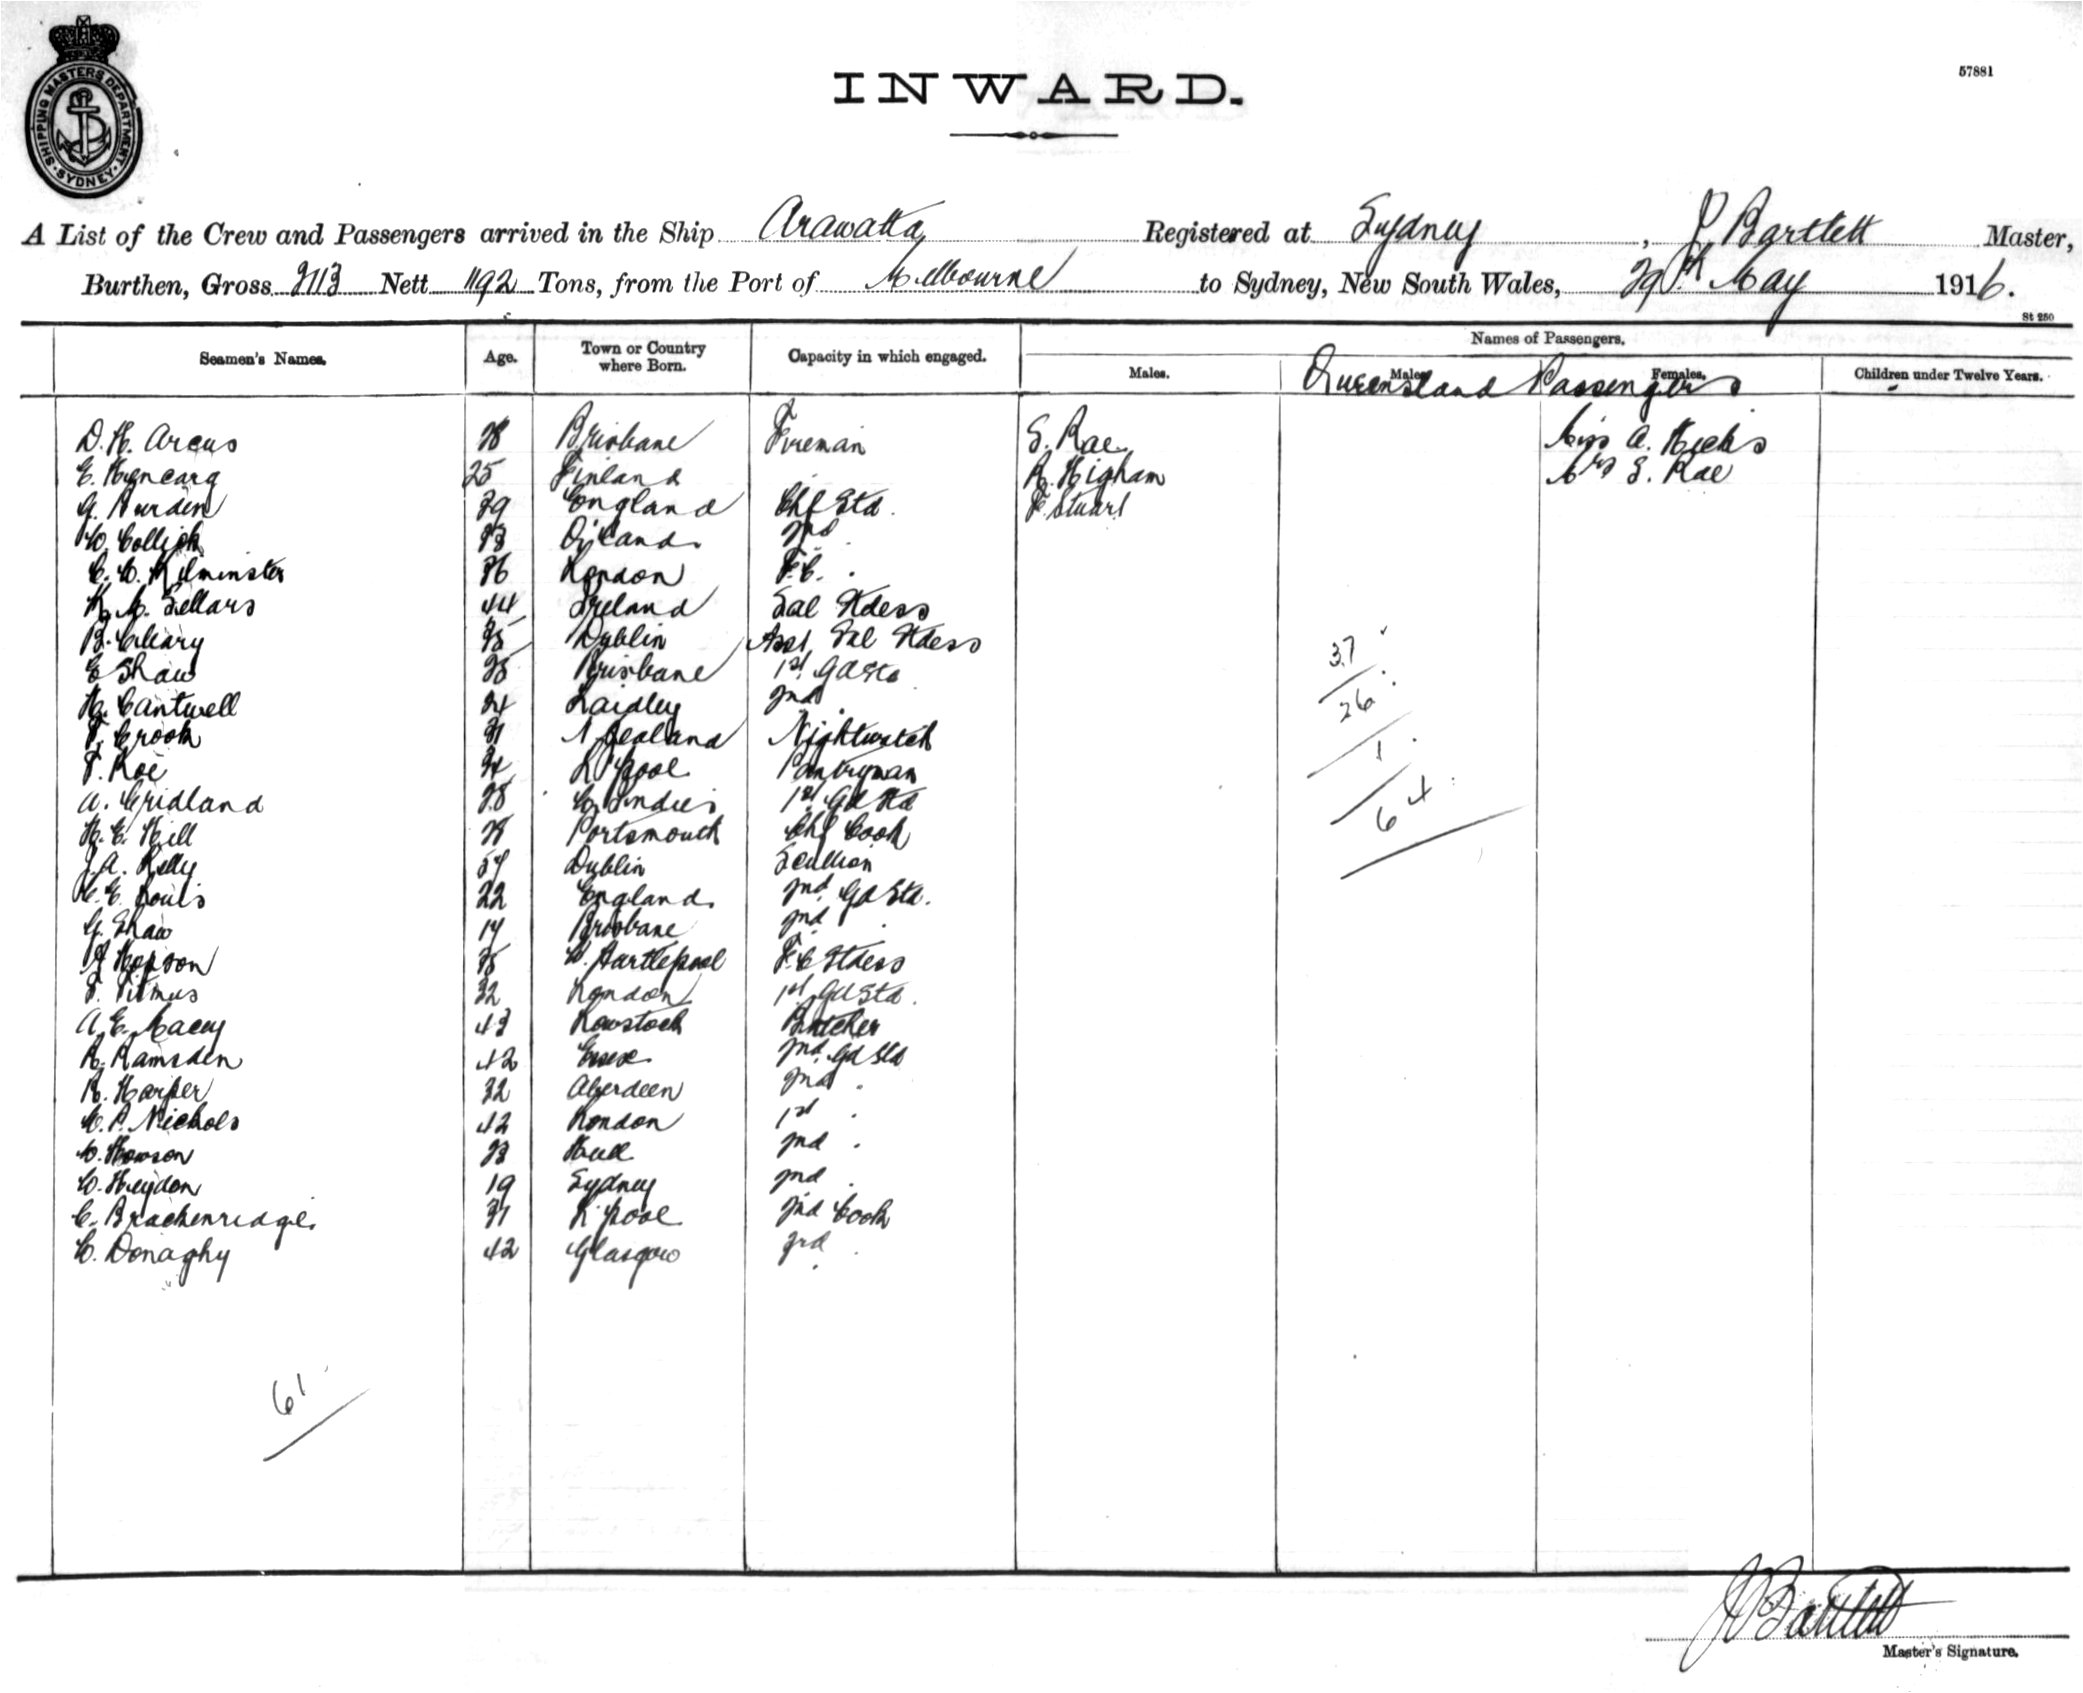 SHIPPING MASTERS DEPARTMENT SYDNEY
INWARD.
57881
A List of the Crew and Passengers arrived in the Ship Arawatta Registered at Sydney, J Bartlett Master,
Burthen, Gross 2113 Nett 1192 Tons, from the Port of Melbourne to Sydney, New South Wales, 29th May 1916.
St 250
Seamen's Names. Age. Town or Country where Born. Capacity in which engaged. Names of Passengers.
Males. Males. Females. Children under Twelve Years.
Queensland Passengers
D. H. Arcus 28 Brisbane Fireman S. Rae Miss A. Hicks
E. 25 Finland R. Higham Mrs S. Rae
G. Burden 29 England Chf Std. F. Stuart
W. Collick O'land 2nd
C. W. Kilminster 36 London F.C.
M. Sellars 44 Ireland Sal Stdess
B. Cleary 35 Dublin Asst Sal Stdess
E Shaw Brisbane 1st Gd Std
H. Cantwell 24 Laidley 2nd
F. Crook 31 N Zealand Nightwatch
F. Roe L'pool Pantryman
A. Cridland 28 W. Indies 1st Gd Std
H. E. Hill 28 Portsmouth Chf Cook
J. A. Kelly 54 Dublin Scullion
C. E. Louis 22 England 2nd Gd Std.
G. Shaw 17 Brisbane 2nd
J Hopson 35 W. Hartlepool F.C Stdess
F. Titmus 32 London 1st Gd Std.
A. E. Macey 43 Lowstock Butcher
R. Ramsden 42 Essex 2nd Gd Std
R. Harper 32 Aberdeen 2nd
C. P. Nichols 42 London 1st
W. Howson 23 Hull 2nd
W. Heydon 19 Sydney 2nd
C. Brackenridge. 31 L'pool 2nd Cook
C. Donaghy 42 Glasgow 3rd
37
26
1
64
61
J Bartlett
Master's Signature.